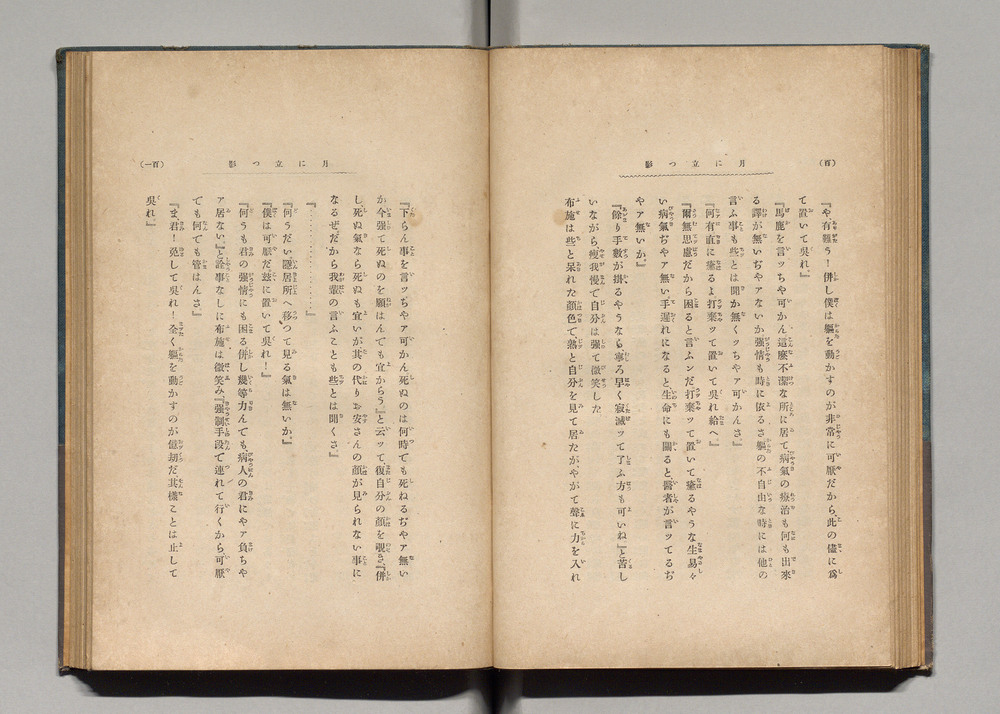 (百)
月に立つ影
『や、有難う！併し僕は軀を動かすのが非常に可厭だから、此の儘に爲
て置いて呉れ。』
『馬鹿を言ッちや可かん這麼不潔な所に居て病氣の療治も何も出來
る譯が無いぢやアないか強情も時に依るさ軀の不自由な時には他の
言ふ事も些とは聞か無くッちやア可かんさ』
『何有直に癒るよ打棄ッて置いて呉れ給へ。』
『爾無思慮だから困ると言ふンだ打棄ッて置いて癒るやうな生易々
い病氣ぢやア無い手遅れになると生命にも關ると醫者が言ッてるぢ
やア無いか。』
『餘り手數が掛るやうなら寧ろ早く寂滅ッて了ふ方も可いね』と苦し
いながら瘦我慢で自分は強て微笑した
布施は些と呆れた顏色で、熟と自分を見て居たが、やがて聲に力を入れ
月に立つ影
(百一)
『下らん事を言ッちやア可かん死ぬのは何時でも死ねるぢやア無い
か今強て死ぬのを願はんでも宜からう』と云ッて、復自分の顏を覗き『併
し、死ぬ氣なら死ぬも宜いが其の代りお安さんの顏が見られない事に
なるぜだから我輩の言ふことも些とは聞くさ。』
『……………………』
『何うだい隱居所へ移つて見る氣は無いか。』
『僕は可厭だ玆に置いて呉れ！』
『何うも君の強情にも困る併し幾等力んでも、病人の君にやア負ちや
ア居ない』と詮事なしに布施は微笑み『強制手段で連れて行くから可厭
でも何でも管はんさ。』
『ま、君！免して呉れ！全く軀を動かすのが億劫だ其樣ことは止して
呉れ。』